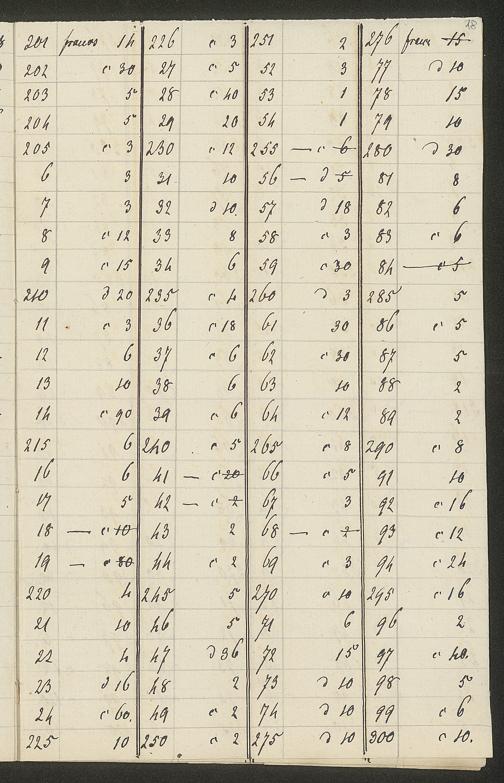 18
201 francs 14 226 c 3 251 2 276 francs 15
202 c 30 27 c 5 52 3 77 d 10
203 5 28 c 40 53 1 78 15
204 5 29 20 54 1 79 10
205 c 3 230 c 12 255 — c 6 280 d 30
6 3 31 10 56 — d 5 81 8
7 3 32 d 10. 57 d 18 82 6
8 c 12 33 8 58 c 3 83 c 6
9 c 15 34 6 59 c 30 84 — c 5
210 d 20 235 c 4 260 d 3 285 5
11 c 3 36 c 18 61 30 86 c 5
12 6 37 c 6 62 c 30 87 5
13 10 38 6 63 10 88 2
14 c 90 39 c 6 64 c 12 89 2
215 6 240 c 5 265 c 8 290 c 8
16 6 41 — c 20 66 c 5 91 10
17 5 42 — c 2 67 3 92 c 16
18 — c 10 43 2 68 — c 2 93 c 12
19 — c 80 44 c 2 69 c 3 94 c 24
220 4 245 5 270 c 10 295 c 16
21 10 46 5 71 6 96 2
22 4 47 d 36 72 15 97 c 40.
23 d 16 48 2 73 d 10 98 5
24 c 60. 49 c 2 74 d 10 99 c 6
225 10 250 c 2 275 d 10 300 c 10.